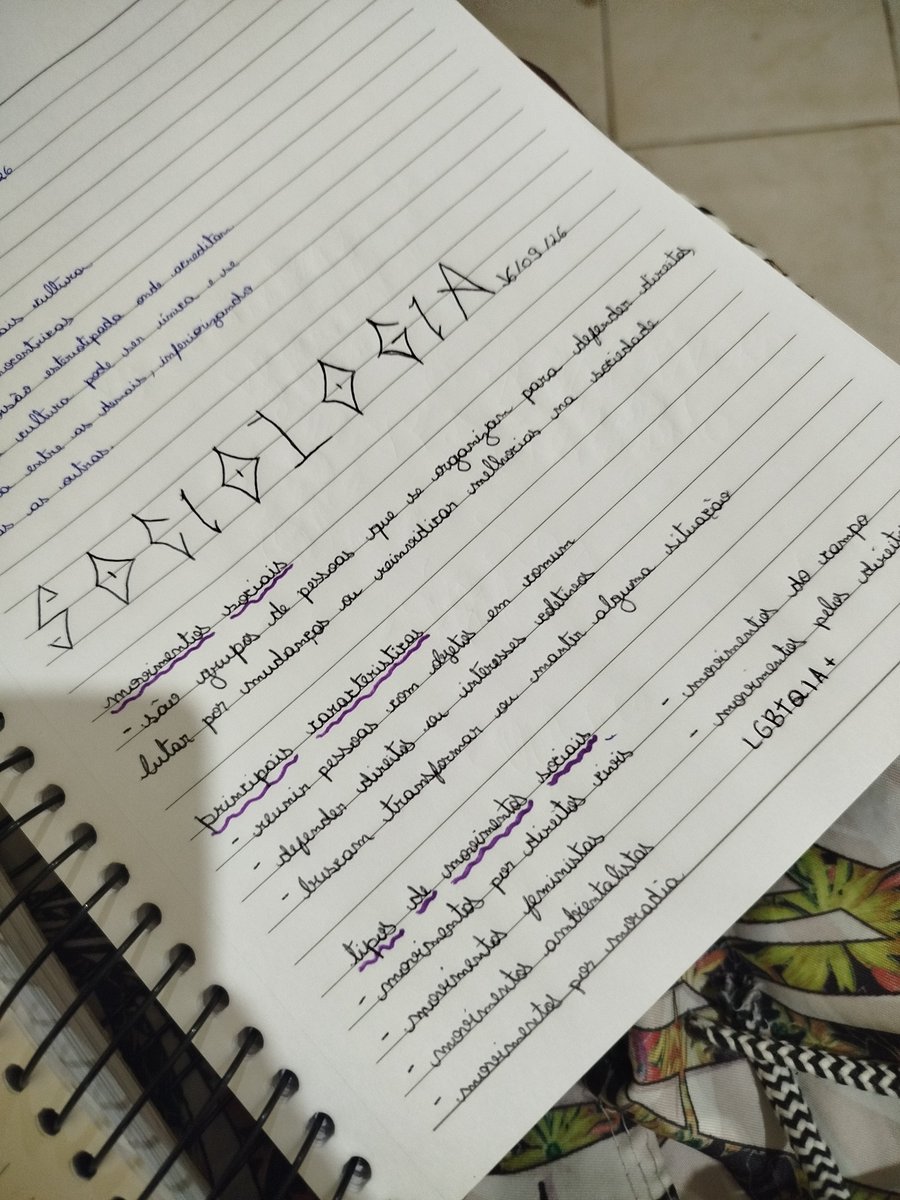 26
ais cultura
nocentricas
rsão esteriotipada onde acreditam
cultura pode ser única e se
a entre as demais, inferiorizando
as outras.
SOCIOLOGIA 16/09/26
movimentos sociais
- são grupos de pessoas que se organizam para defender direitos
lutar por mudanças ou reinvidicar melhorias na sociedade
principais caracteristicas
- reunir pessoas com objetos em comum
- defender direitos ou interesses coletivos
- buscam transformar ou mantir alguma situação
tipos de movimentos sociais
- movimentos por direitos civis
- movimentos feministas
- movimentos ambientalistas
- movimentos por moradia
- movimentos do campo
- movimentos pelos direitos
LGBTQIA+